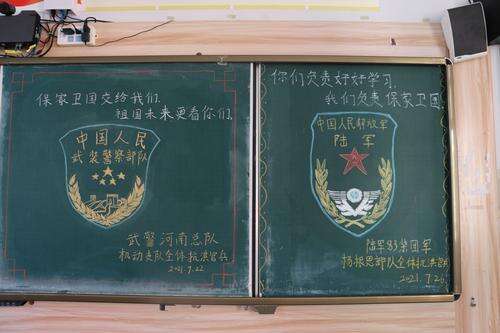 保家卫国交给我们,
祖国未来更看你们.
中国人民
武装警察部队
武警河南总队
机动支队全体抗洪官兵
2021.7.22
你们负责好好学习,
我们负责保家卫国
中国人民解放军
陆军
陆军83集团军
杨根思部队全体抗洪官兵
2021.7.26